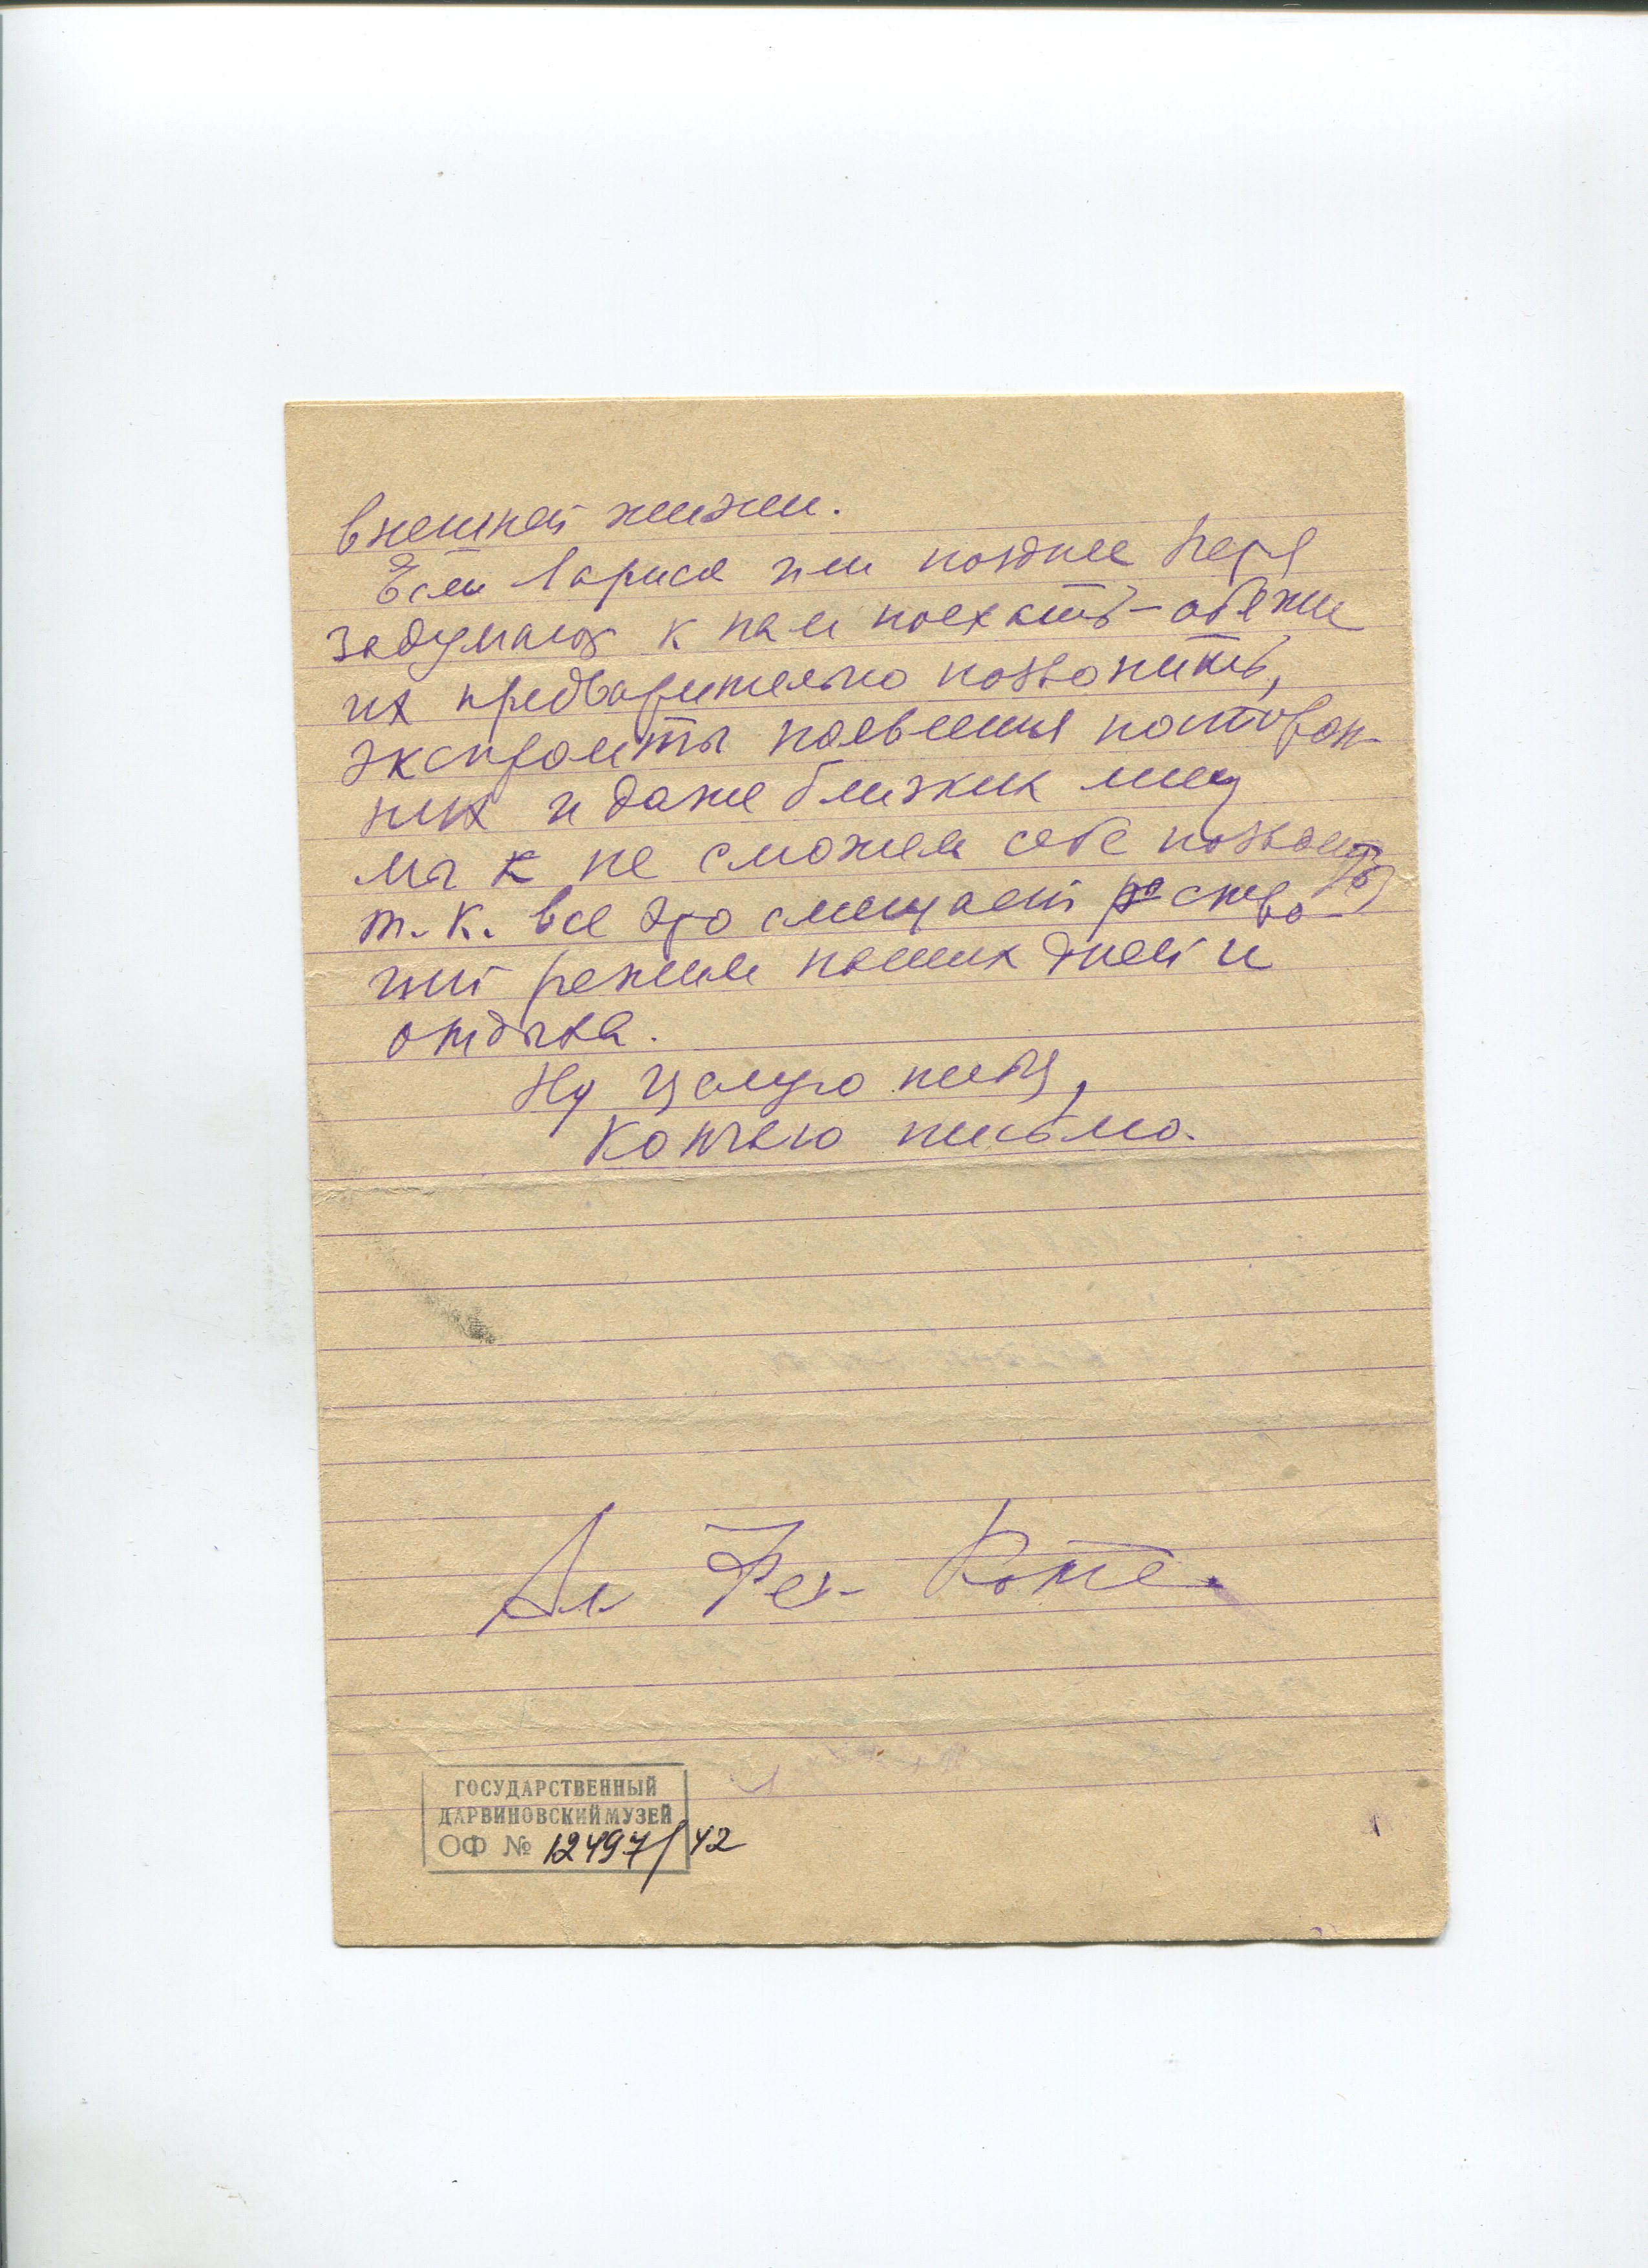 внешней жизни.
Если Лариса или позднее Петя
задумают к нам поехать – обяжи
их предварительно позвонить,
экспромты появления посторон-
них и даже близких лиц
мы не сможем себе позволить,
т. к. все это смещает стро-
гий режим наших дней и
отдыха.
Ну целую тебя,
Кончаю письмо.
Ал Фед Котс.
ГОСУДАРСТВЕННЫЙ
ДАРВИНОВСКИЙ МУЗЕЙ
ОФ № 12497/42